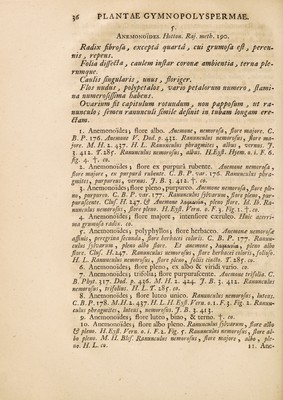 36 PLANTAE GYMNOPOLYSPERMAE.
5.
ANEMONOÏDES. Helion. Raj. meth. 190.
Radix fibrosa, exceptâ quartâ, cui grumosa est, perennis, repens.
Folia dissecta, caulem instar corona ambientia, terna plerumque.
Caulis singularis, unus, floriger.
Flos nudus, polypetalos, vario petalorum numero, staminâ numerosissima habens.
Ovarium fit capitulum rotundum, non papposum, ut ranunculo; semen ranunculi simile desinit in tubam longam erectam.
1. Anemonoïdes; flore albo. Anemone, nemorosa, flore majore. C. B. P. 176. Anemone V. Dod. p. 432. Ranunculus nemorosus, flore majore. M. H. 2. 437. H. L. Ranunculus phragmites, albus, vernus. J. 3. 412. T. 285. Ranunculus nemorosus, albus. H. Eyst. Hyem. o. i. F. 6. fig. 4. †. co.
2. Anemonoïdes; flore ex purpurâ rubente. Anemone nemorosa, flore majore, ex purpurâ rubente. C. B. P. var. 176. Ranunculus phragmites, purpureus, vernus. J. B. 3. 412. †. co.
3. Anemonoïdes, flore pleno, purpureo. Anemone nemorosa, flore pleno, purpureo. C. B. P. var. 177. Ranunculus sylvarum, flore pleno, purpurascente. Clus. H. 247.
4. Anemonoïdes; flore majore, intensiore cæruleo. Huic acerrima grumosa radix. co.
5. Anemonoïdes; polyphyllos; flore herbaceo. Anemone nemorosa affinis, peregrina secunda, flore herbacei coloris. C. B. P. 177. Ranunculus sylvarum, pleno albo flore.
6. Anemonoïdes; flore pleno, ex albo & viridi vario. co.
7. Anemonoïdes; trifolia; flore purpurascente. Anemone trifolia. C. B. Phyt. 317. Dod. p. 436. M. H. 2. 424. J. B. 3. 412. Ranunculus nemorosus, trifolius. H. L. T. 285. co.
8. Anemonoïdes; flore luteo unico. Ranunculus nemorosus, luteus. C. B. P. 178. M. H. 2. 437. H. L. H. Eyst. Vern. o. 1. F. 3. Fig. 2. Ranunculus phragmites, luteus, nemorosus. J. B. 3. 413.
9. Anemonoïdes; flore luteo, bino, & terno. †. co.
10. Anemonoïdes; flore albo pleno. Ranunculus sylvarum, flore albo & pleno. H. Eyst. Vern. o. 1. F. 2. Fig. 5. Ranunculus nemorosus, flore albo pleno. M. H. Bles. Ranunculus nemorosus, flore majore, albo, pleno. H. L. co.
11. Ane-